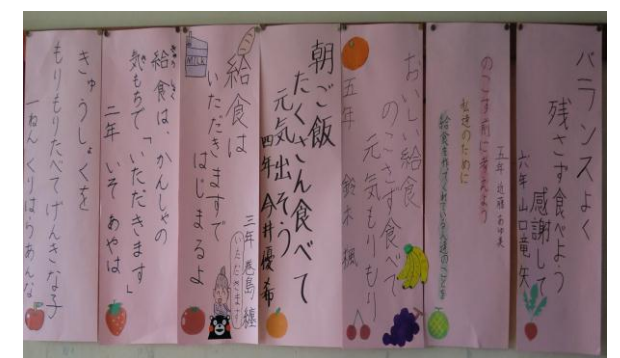 バランスよく
残さず食べよう
感謝して
六年 山口竜矢
のこす前に考えよう
五年 近藤あゆ美
私達のために
給食を作ってくれている人達のことを
おいしい給食
のこさず食べて
元気もりもり
五年 鈴木楓
朝ご飯
たくさん食べて
元気出そう
四年 今井優希
MILK
給食は
いただきますで
はじまるよ
三年 巻島
いただきます
きゅうしょく
給食は、かんしゃの
気もちで「いただきます」
二年 いそ あやは
きゅうしょくを
もりもりたべてげんきな子
一ねん くりはらあんな